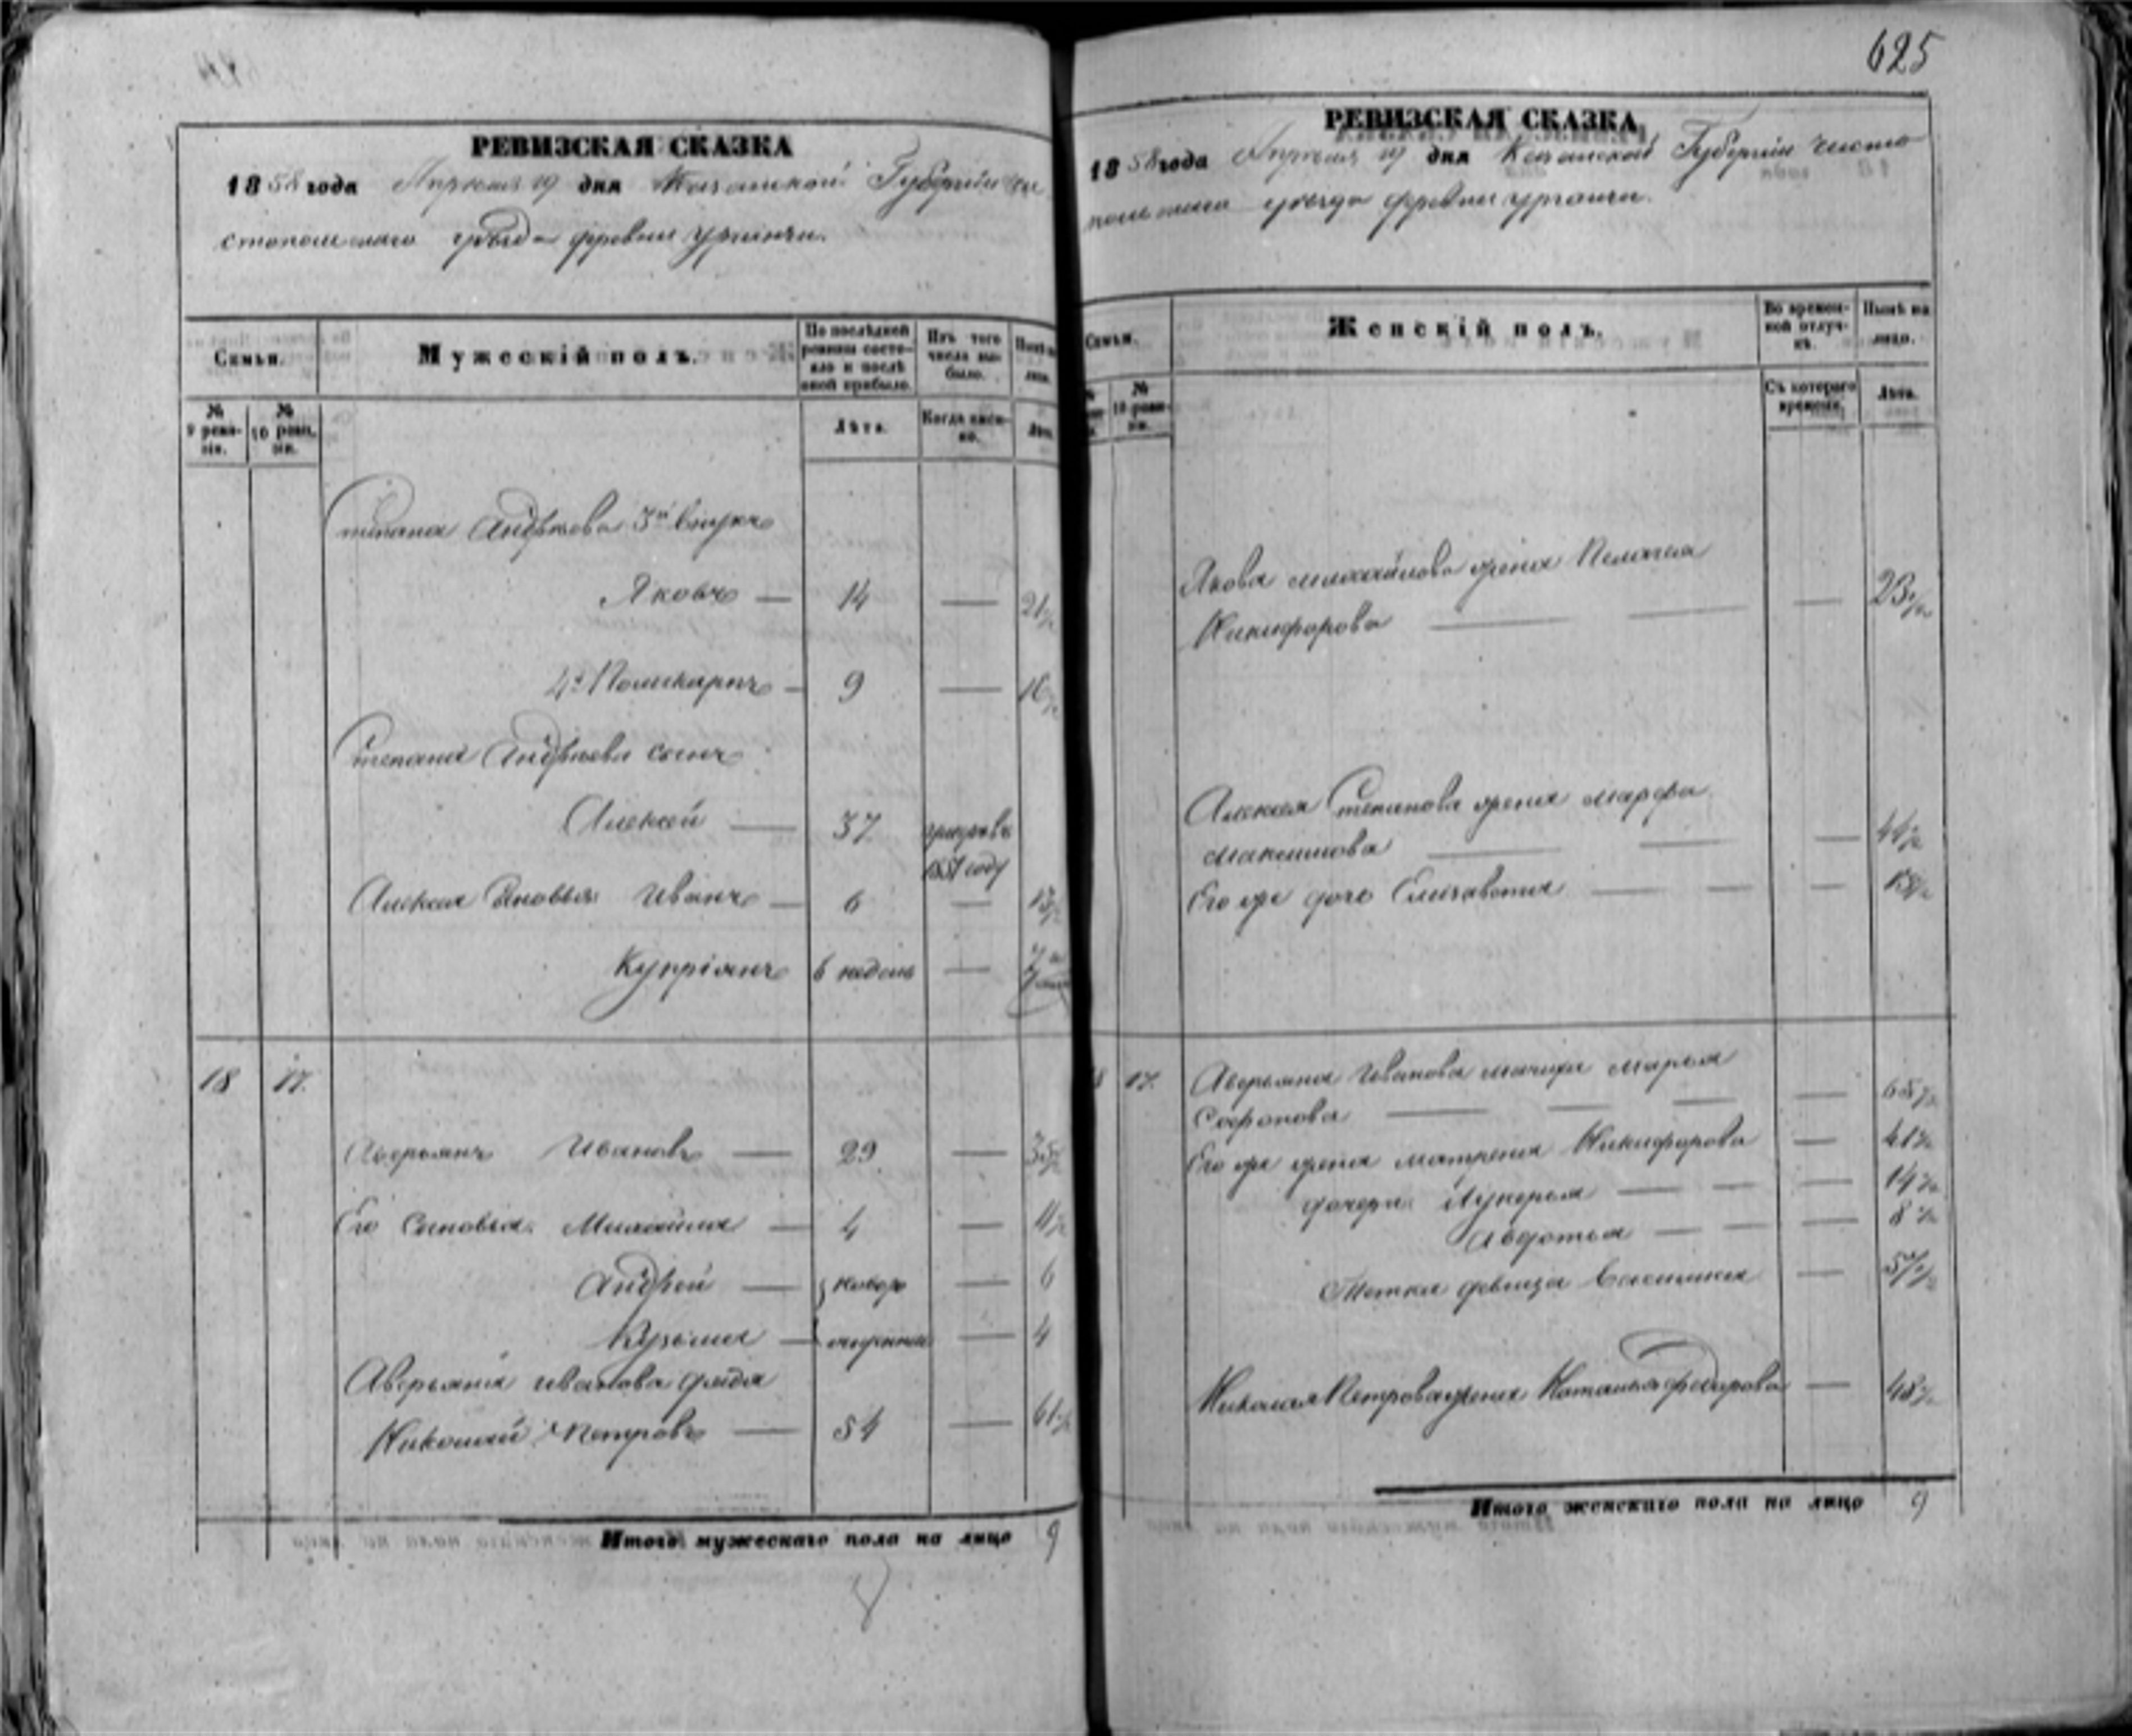 625
РЕВИЗСКАЯ СКАЗКА
1858 года Апреля 19 дня Казанской Губернии Чи
стопольскаго уѣзда деревни
Семьи.
Мужескій полъ.
По послѣдней ревизіи состояло и послѣ оной прибыло.
Изъ того числа выбыло.
Нынѣ на лицо.
№ 9 ревизіи.
№ 10 ревизіи.
Лѣта.
Когда именно.
Лѣта.
Степана Андреева 3й внукъ
Яковъ — 14 — 21 1/2
4й Поликарпъ — 9 — 16 1/2
Степана Андреева сынъ
Алексѣй — 37 умеръ въ
1851 году
Алексея Сыновья Иванъ — 6 — 13 1/2
Купріянъ 6 недель — 7
18 17.
Аверьянъ Ивановъ — 29 —
Его Сыновья Михайла — 4 — 11 1/2
Андрей — новоро — 6
Кузьма — жденные — 4
Аверьяна Иванова дядя
Николай Петровъ — 54 — 61 1/2
Итого мужескаго пола на лицо 9
РЕВИЗСКАЯ СКАЗКА
1858 года Апреля 19 дня Казанской Губернии Чисто
польскаго уѣзда деревни
Семьи.
Женскій полъ.
Во временной отлучкѣ.
Нынѣ на лицо.
№ 10 ревизіи.
Съ котораго времени.
Лѣта.
Якова Михайлова жена Пелагея
Никифорова — — — 23 1/2
Алексея Степанова жена Марфа
Максимова — — — 44 1/2
Его же дочь Елизавета — — —
17. Аверьяна Иванова мачиха Марья
Софонова — — — — 65 1/2
Его же жена Матрена Никифорова — 41 1/2
дочери Лукерья — — — 14 1/2
Авдотья — — — 8 1/2
Тетка девица — 57 1/2
Николая Петрова жена Наталья Федорова — 48 1/2
Итого женскаго пола на лицо 9